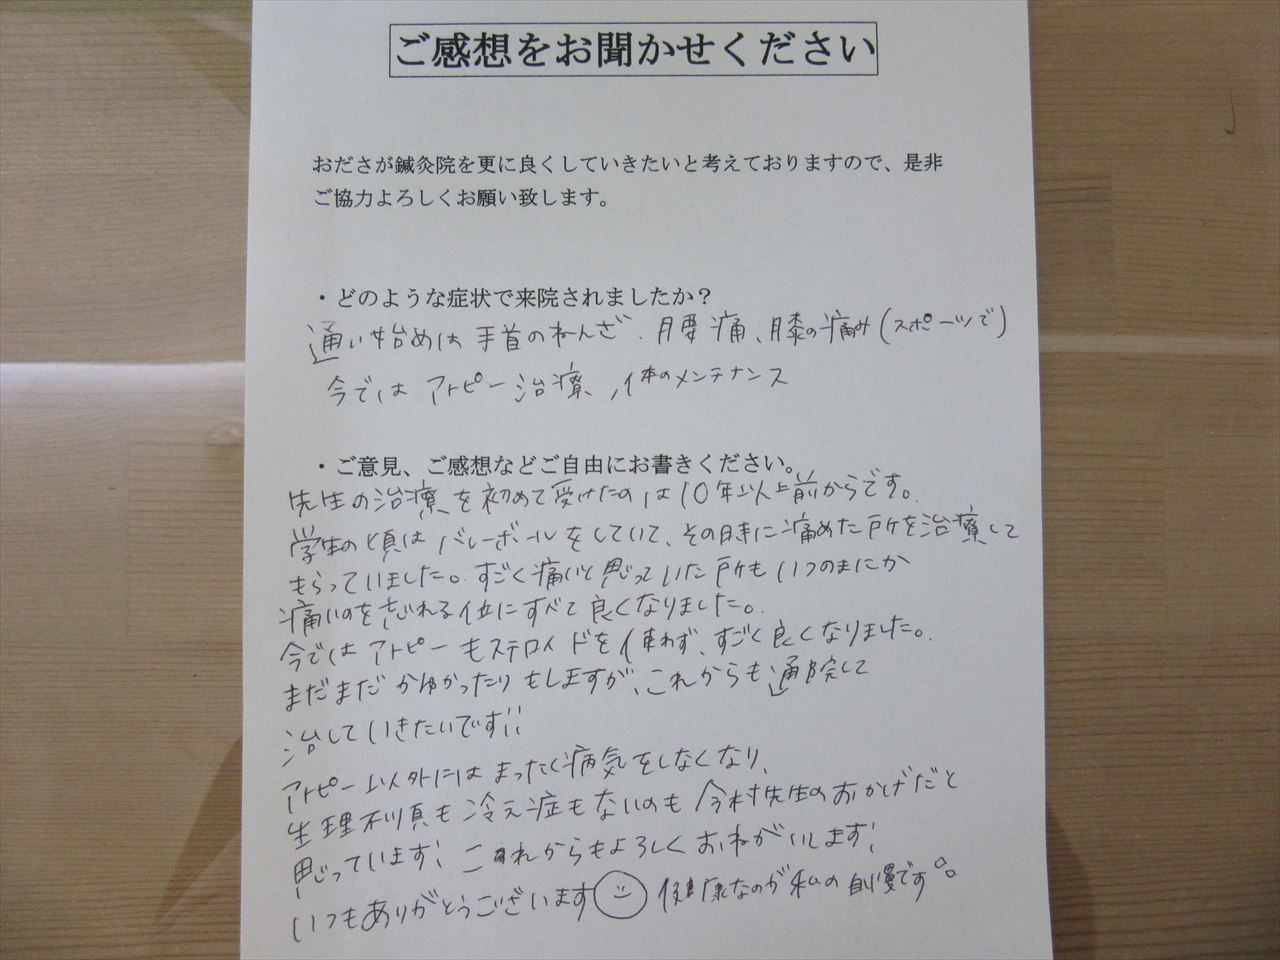 ご感想をお聞かせください
おださが鍼灸院を更に良くしていきたいと考えておりますので、是非
ご協力よろしくお願い致します。
・どのような症状で来院されましたか？
通い始めは手首のねんざ、腰痛、膝の痛み(スポーツで)
今ではアトピー治療、体のメンテナンス
・ご意見、ご感想などご自由にお書きください。
先生の治療を初めて受けたのは10年以上前からです。
学生の頃はバレーボールをしていて、その時に痛めた所を治療して
もらっていました。すごく痛いと思っていた所もいつのまにか
痛いのを忘れる位にすべて良くなりました。
今ではアトピーもステロイドを使わず、すごく良くなりました。
まだまだかゆかったりもしますが、これからも通院して
治していきたいです!!
アトピー以外にはまったく病気をしなくなり、
生理不順も冷え症もないのも今村先生のおかげだと
思っています! これからもよろしくおねがいします!
いつもありがとうございます 健康なのが私の自慢です。